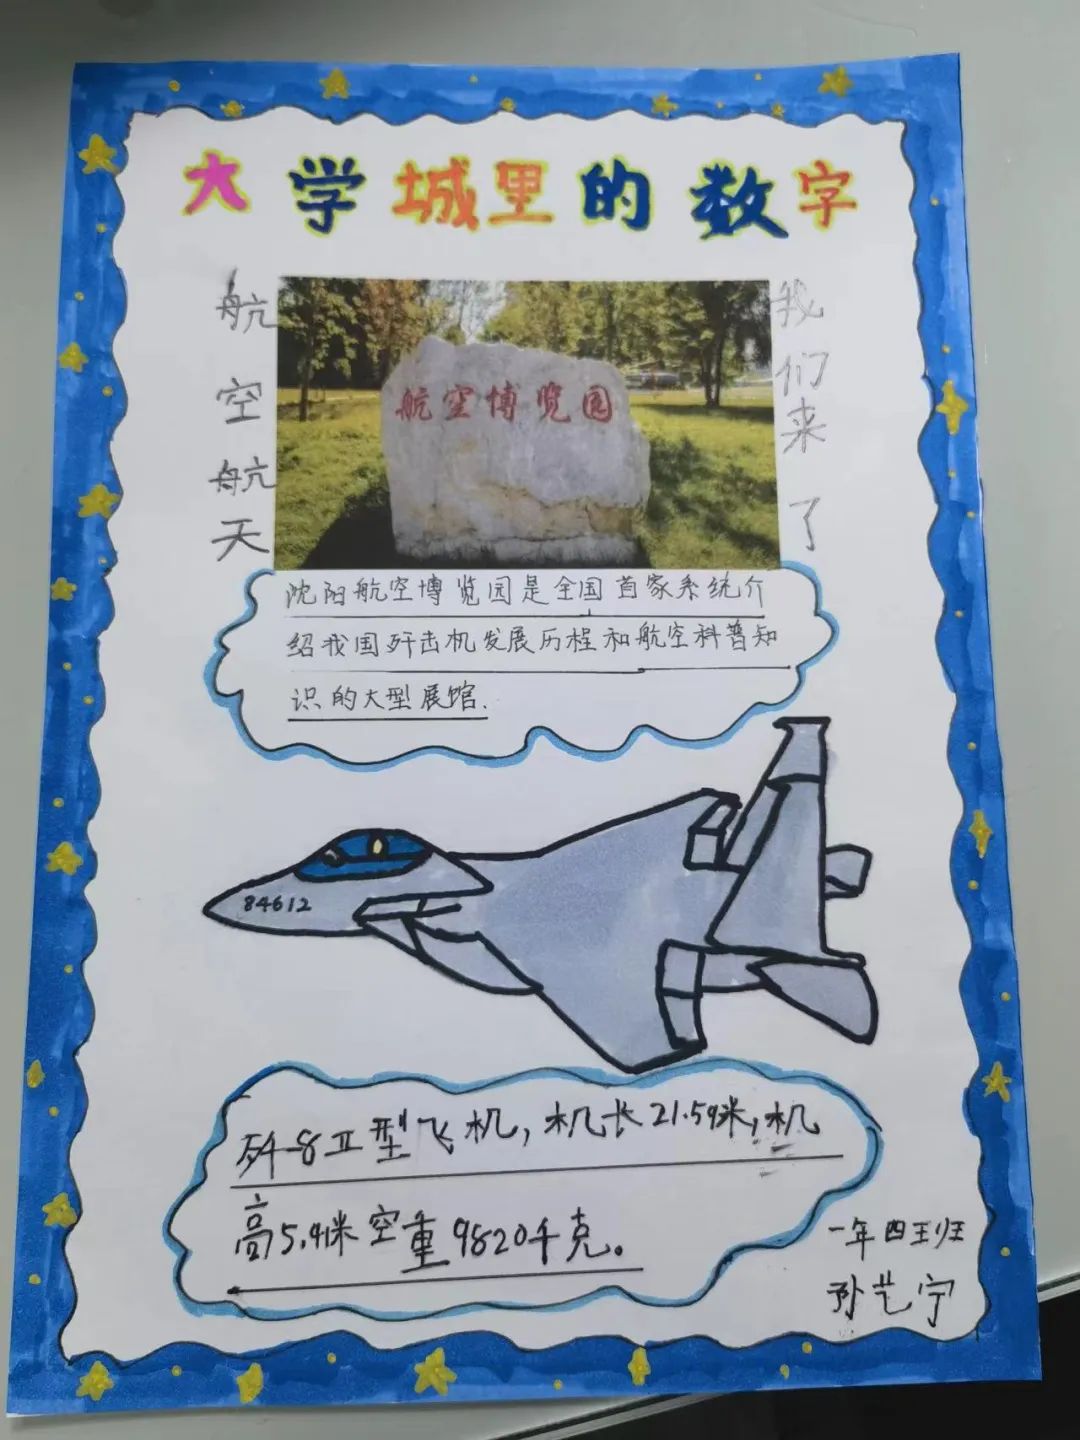 大学城里的数字
航空航天
我们来了
航空博览园
沈阳航空博览园是全国首家系统介
绍我国歼击机发展历程和航空科普知
识的大型展馆.
84612
歼-8Ⅱ型飞机,机长21.59米,机
高5.41米空重9820千克。
一年四班
孙艺宁